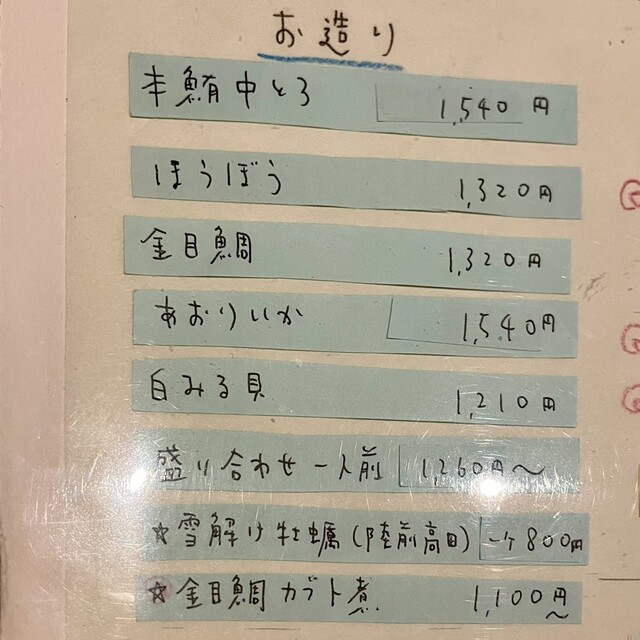 お造り
本鮪中とろ 1,540円
ほうぼう 1,320円
金目鯛 1,320円
あおりいか 1,540円
白みる貝 1,210円
盛り合わせ一人前 1,260円〜
☆雪解け牡蠣(陸前高田) 一ケ800円
☆金目鯛カブト煮 1,100円〜